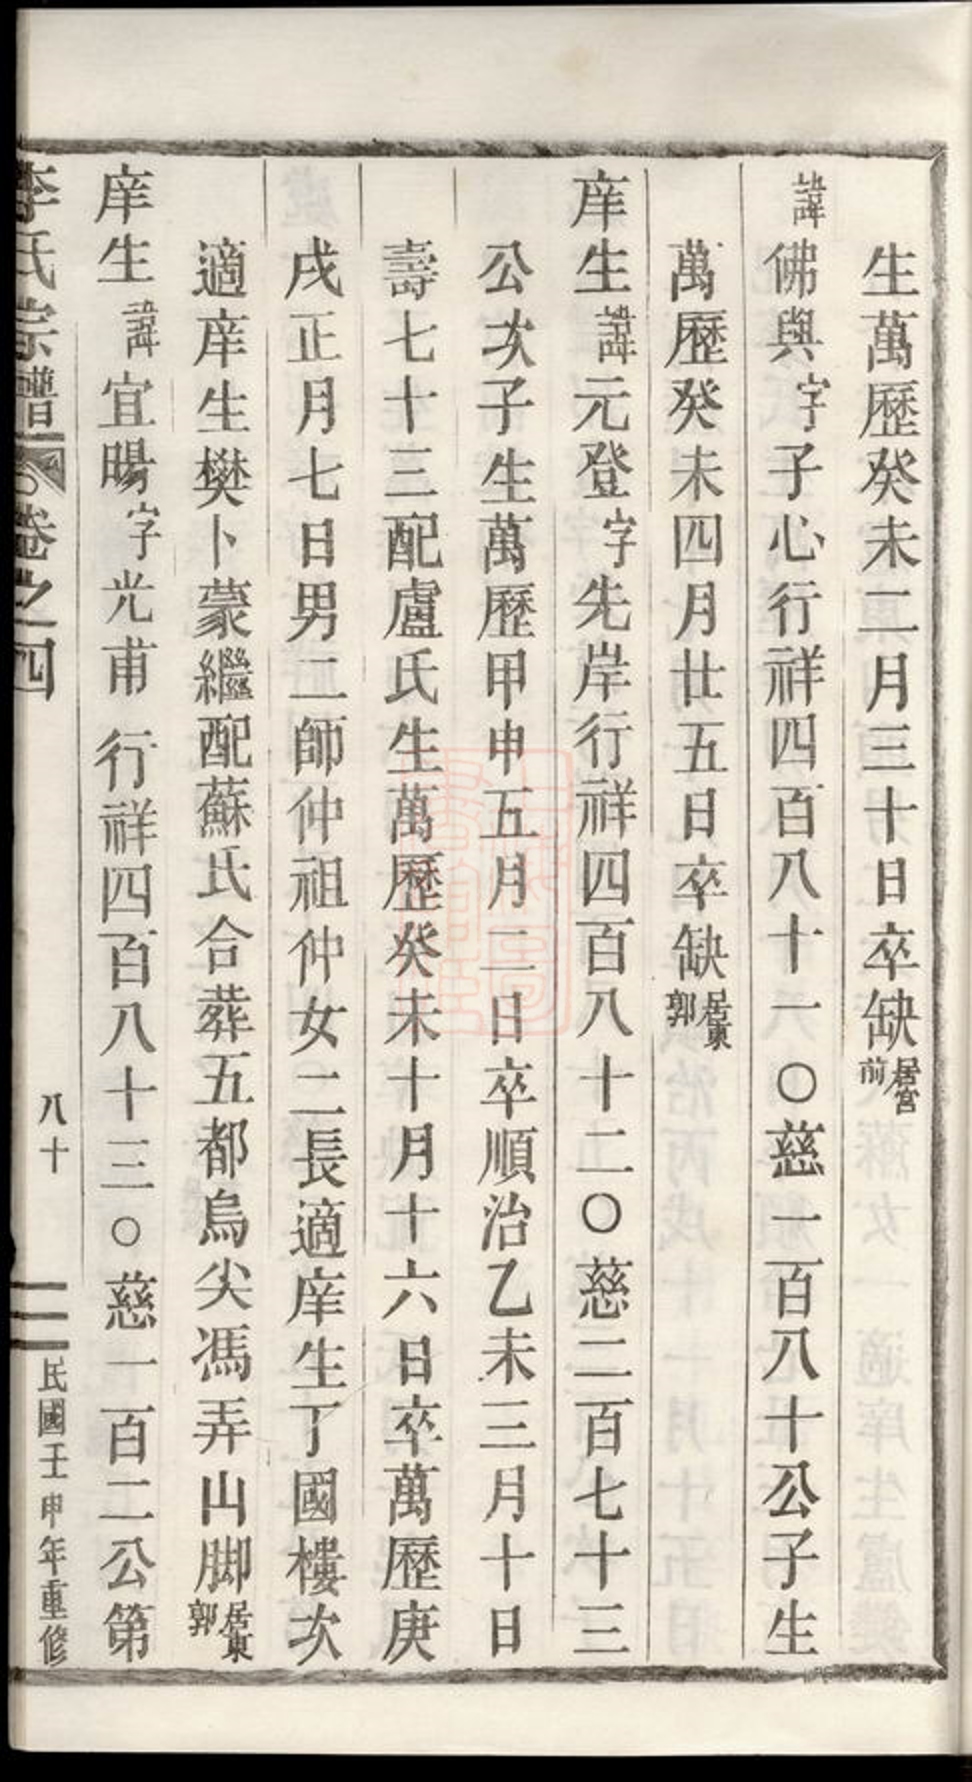 生萬歷癸未二月三十日卒缺居宮前
諱佛與字子心行祥四百八十一〇慈一百八十公子生
萬歷癸未四月廿五日卒缺居東郭
庠生諱元登字先岸行祥四百八十二〇慈二百七十三
公次子生萬歷甲申五月二日卒順治乙未三月十日
壽七十三配盧氏生萬歷癸未十月十六日卒萬歷庚
戌正月七日男二師仲祖仲女二長適庠生丁國樓次
適庠生樊卜蒙繼配蘇氏合葬五都烏尖馮弄山脚居東郭
庠生諱宜暘字光甫行祥四百八十三〇慈一百二公第
李氏宗譜 卷之四 八十 民國壬申年重修